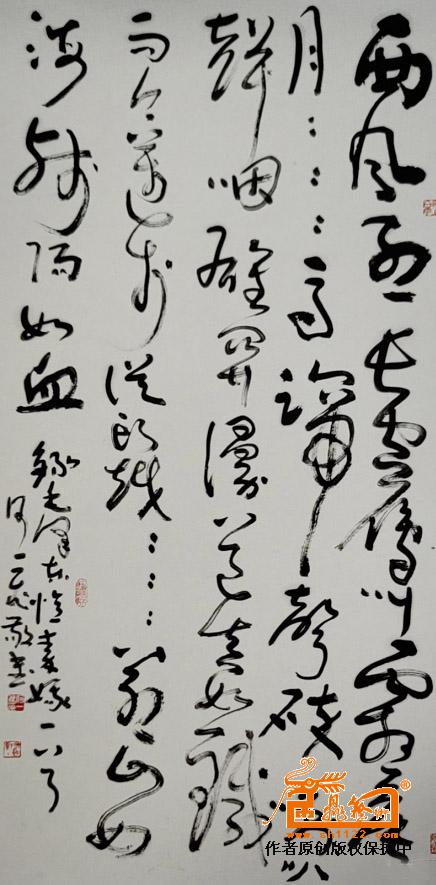 西风烈长空雁叫霜晨
月：：：马蹄聲碎喇叭
聲咽雄関漫道真如鐵
而今迈步從頭越：：：苍山如
海残阳如血
録毛泽东忆秦娥一首
www.sh1122.com
作者原创版权保护中